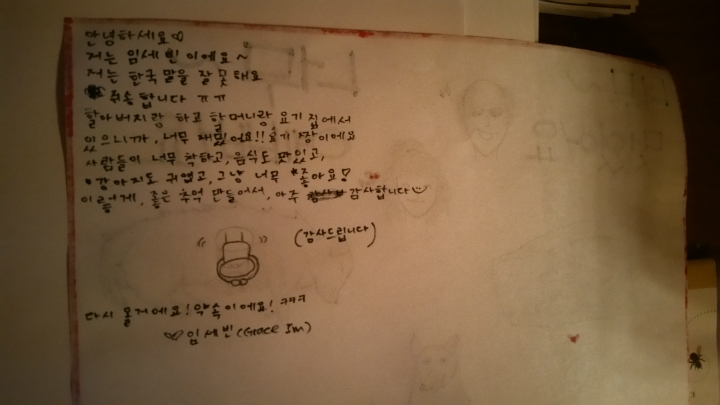 안녕하세요♡
저는 임세빈이에요~
저는 한국말을 잘못해요
죄송합니다 ㅠㅠ
할아버지랑 하고 할머니랑, 요기 집에서
있으니까, 너무 재밌어요!! 요기 짱이에요
사람들이 너무 착하고, 음식도 맛있고,
강아지도 귀엽고, 그냥 너무 좋아요!
이렇게, 좋은 추억 만들어서, 아주 감사합니다☺
(감사드립니다)
다시 올거에요! 약속이에요! ㅋㅋㅋ
♡임세빈(Grace Im)